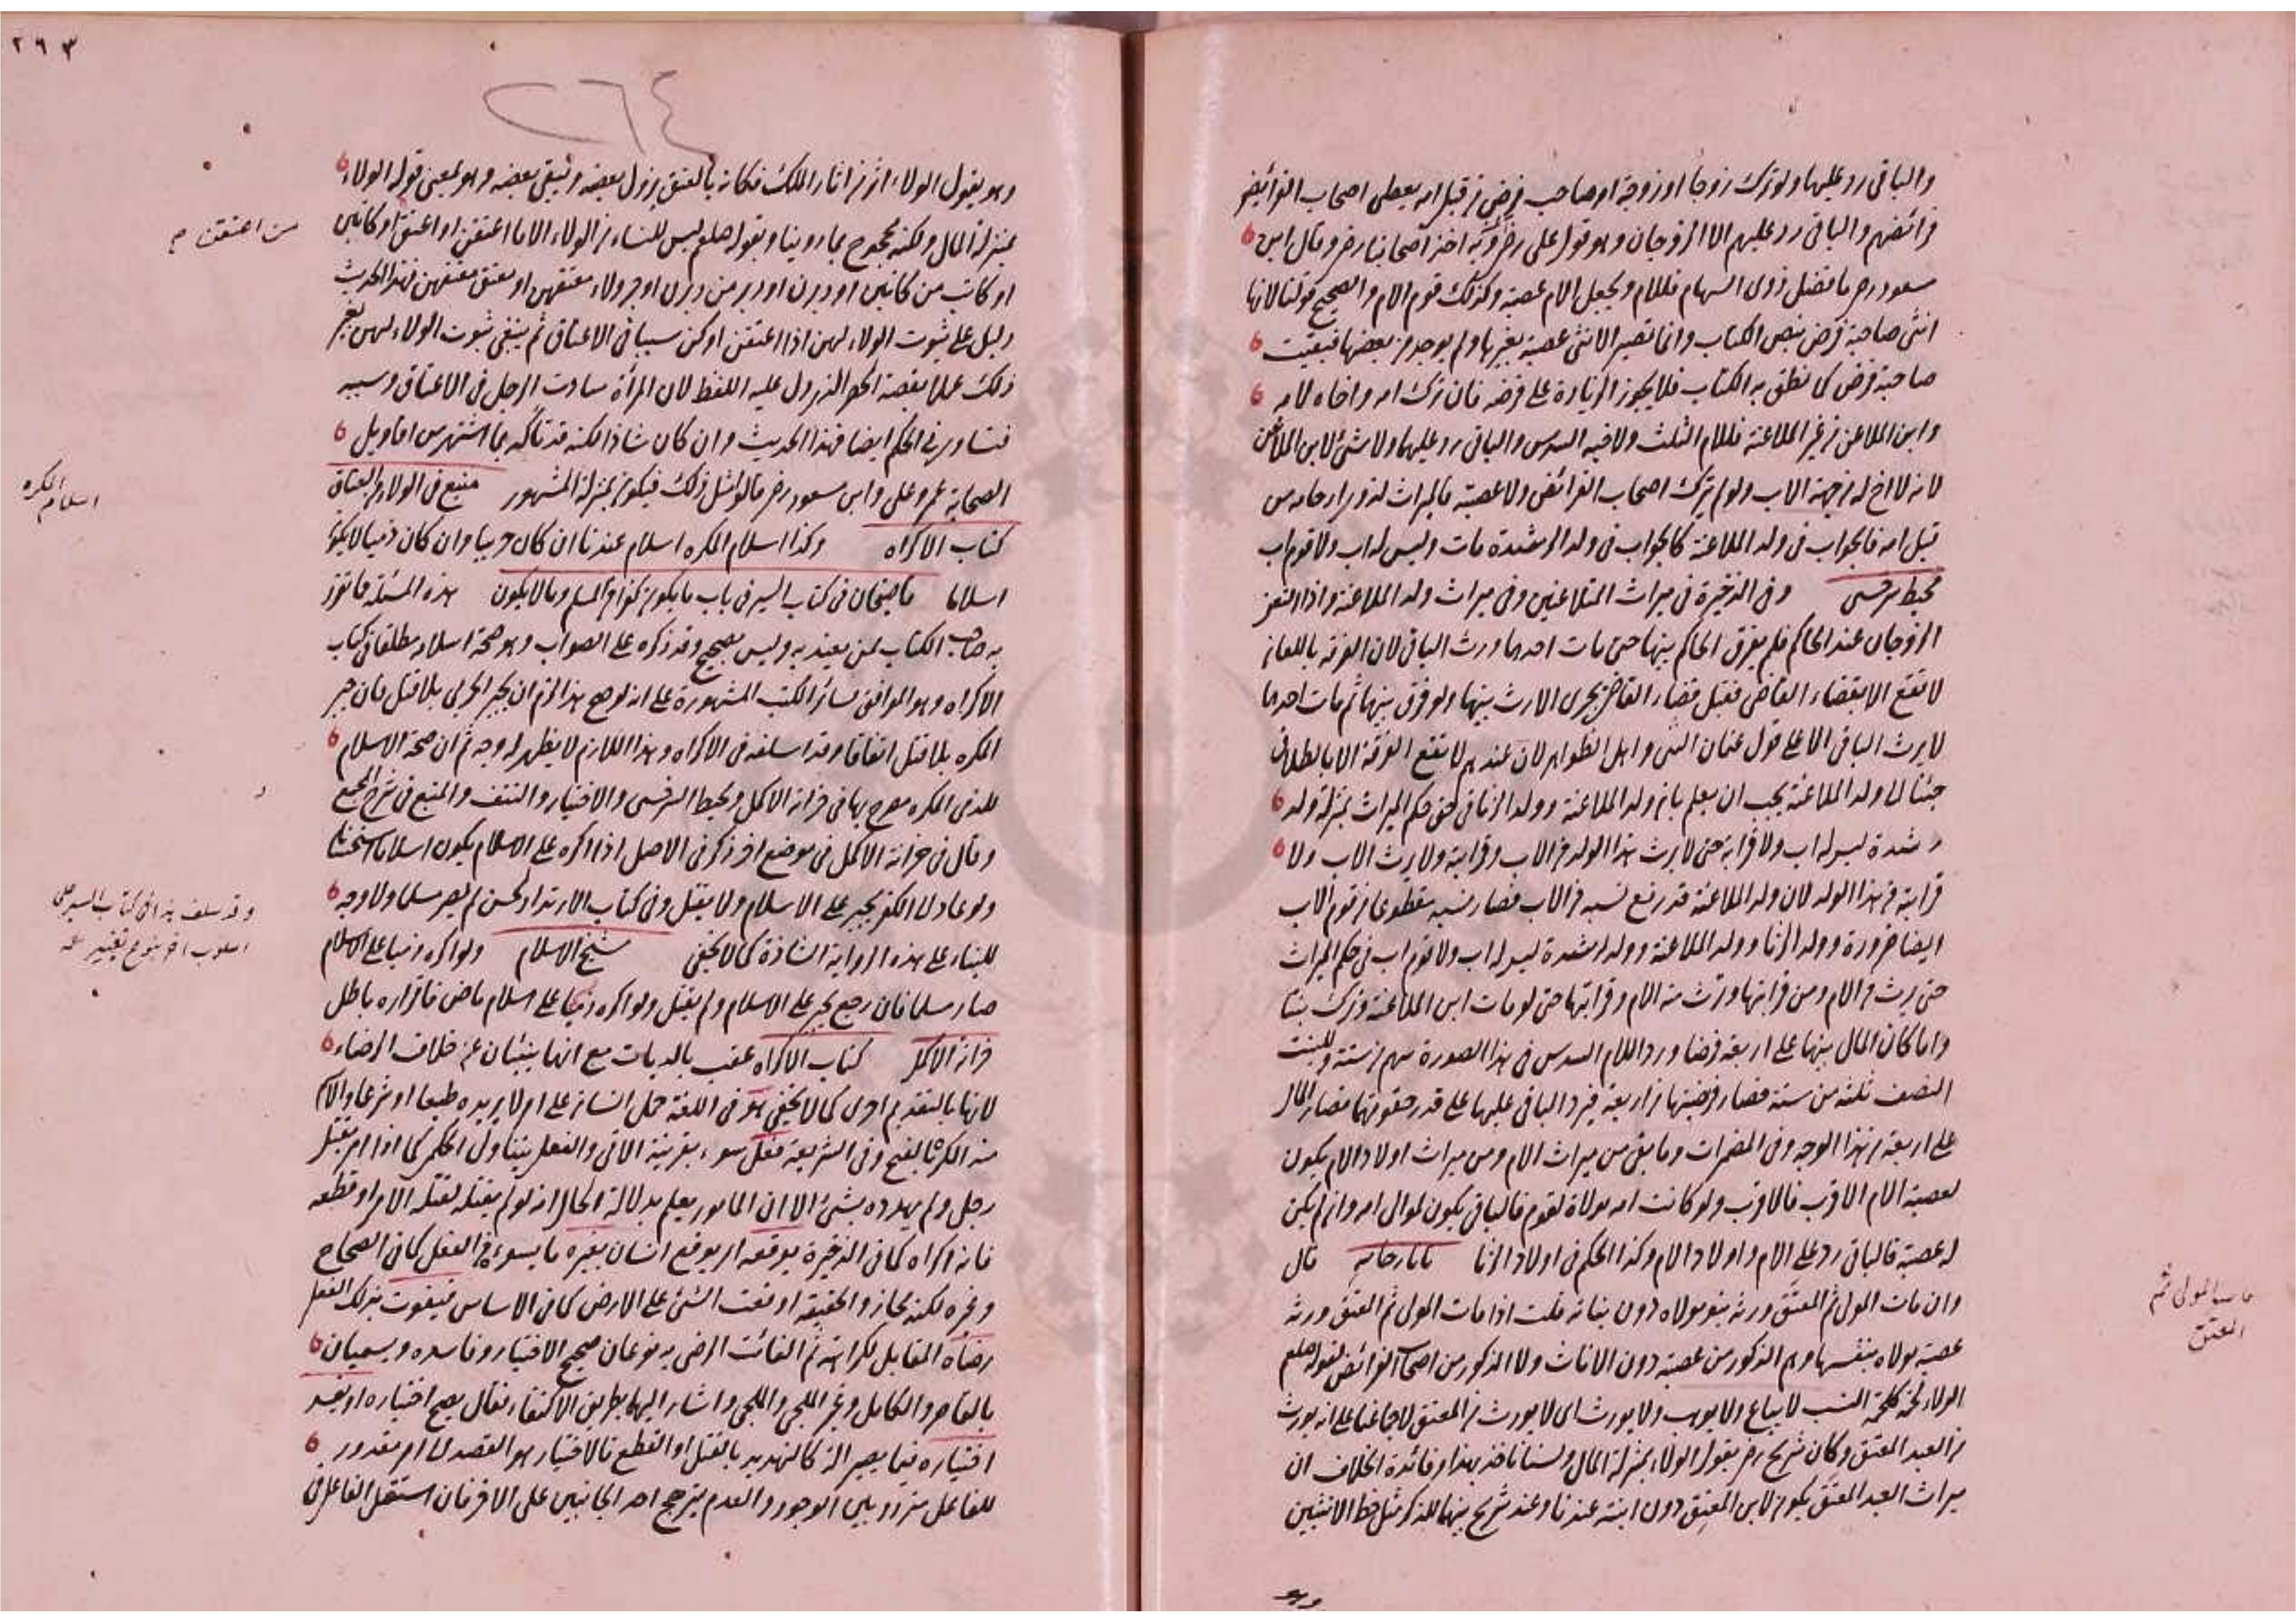 والباقى رد عليها ولو ترك زوجا او زوجة او صاحب فرض من قبل امه يعطى اصحاب الفرائض
فرائضهم والباقى رد عليهم الا الزوجان وهو قول على رض وبه اخذ اصحابنا رض وقال ابن
مسعود رض ما فضل ذوى السهام فللام ويجعل الام عصبة وكذلك قوم الام والصحيح قولنا لانها
انثى صاحبة فرض بنص الكتاب وانما تصير الانثى عصبة بغيرها ولم يوجد من يعضها فبقيت
صاحبة فرض كما نطق به الكتاب فلا يجوز الزيادة على فرضه فان ترك امه واخاه لامه
وابن الملاعن من غير الملاعنة فللام الثلث ولاخيه السدس والباقى رد عليهما ولا شئ لابن الملاعن
لانه لا اخ له من جهة الاب ولو لم يترك اصحاب الفرائض ولا عصبة فالميراث لذوى ارحامه من
قبل امه فالجواب فى ولد الملاعنة كالجواب فى ولد الرشدة مات وليس له اب ولا قوم اب
محيط سرخسى وفى الذخيرة فى ميراث المتلاعنين وفى ميراث ولد الملاعنة واذا التعن
الزوجان عند الحاكم فلم يفرق الحاكم بينهما حتى مات احدهما ورث الباقى لان الفرقة باللعان
لا تقع الا بقضاء القاضى فقبل قضاء القاضى يجرى الارث بينهما ولو فرق بينهما ثم مات احدهما
لا يرث الباقى الا على قول عثمان البتى واهل الظواهر لان عندهم لا تقع الفرقة الا بالطلاق
جئنا الى ولد الملاعنة يجب ان يعلم بان ولد الملاعنة وولد الزنا فى حق حكم الميراث بمنزلة ولد
رشدة ليس له اب ولا قرابة حتى لا يرث هذا الولد من الاب وقرابته ولا يرث الاب ولا
قرابته من هذا الولد لان ولد الملاعنة قد رفع نسبه من الاب فصار نسبه مقطوعا من قوم الاب
ايضا ضرورة وولد الزنا وولد الملاعنة وولد رشدة ليس له اب ولا قوم اب فى حكم الميراث
حتى يرث من الام ومن قرابتها وترث منه الام وقرابتها حتى لو مات ابن الملاعنة وترك بنتا
واما كان المال بينهما على اربعة فرضا وردا للام السدس فى هذا الصورة سهم من ستة وللبنت
النصف ثلثة من ستة فصار فريضتهما من اربعة فيرد الباقى عليهما على قدر حقوقهما فصار المال
على اربعة من هذا الوجه وفى المضمرات وما بقى من ميراث الام ومن ميراث اولاد الام يكون
لعصبة الام الاقرب فالاقرب ولو كانت امه مولاة لقوم فالباقى يكون لموالى امه وان لم يكن
له عصبة فالباقى رد على الام واولاد الام وكذا الحكم فى اولاد الزنا تاتارخانيه قال
وان مات المولى ثم المعتق ورثه بنو مولاه دون بناته قلت اذا مات المولى ثم المعتق ورثه
عصبة مولاه بنفسها وهم الذكور من عصبته دون الاناث ولا الذكور من اصحاب الفرائض لقوله صلعم
الولاء لحمة كلحمة النسب لا يباع ولا يوهب ولا يورث اى لا يورث من المعتق لاجماعنا على انه يورث
من العبد المعتق وكان شريح رض يقول الولاء بمنزلة المال ولسنا ناخذ بهذا وفائدة الخلاف ان
ميراث العبد المعتق يكون لابن المعتق دون ابنته عندنا وعند شريح بينهما للذكر مثل حظ الانثيين
مات المولى ثم
المعتق
وهو
٢٦٣
٢٦٤
وهو يقول الولاء اثر من اثار الملك فكانه بالعتق يزول بعضه ويبقى بعضه وهو لمعنى قوله الولاء
بمنزلة المال ولكنه محجوج بما روينا وبقوله صلعم ليس للنساء من الولاء الا ما اعتقن او اعتق او كاتبن
او كاتب من كاتبن او دبرن او دبر من دبرن او جر ولاء معتقهن او معتق معتقهن فهذا الحديث
دليل على ثبوت الولاء لهن اذا اعتقن او كن سببا فى الاعتاق ثم ينفى ثبوت الولاء لهن بغير
ذلك عملا بقضية الحصر الذى دل عليه اللفظ لان المرأة ساوت الرجل فى الاعتاق وسببه
فتساويه فى الحكم ايضا فهذا الحديث وان كان شاذا لكنه قد تاكد بما اشتهر من اقاويل
الصحابة عمر وعلى وابن مسعود رض قالوا مثل ذلك فيكون بمنزلة المشهور منبع فى الولاء والعتاق
كتاب الاكراه وكذا اسلام المكره اسلام عندنا ان كان حربيا وان كان ذميا لا يكون
اسلاما قاضيخان فى كتاب السير فى باب ما يكون كفرا من المسلم وما لا يكون هذه المسئلة مأخوذ
به صاحب الكتاب لمن يعتد به وليس بصحيح وقد ذكره على الصواب وهو صحة اسلامه مطلقا فى كتاب
الاكراه وهو الموافق لسائر الكتب المشهورة على انه لو صح هذا لزم ان يجبر الحربى بلا قتل فان جبر
المكره بلا قتل اتفاقا وقد اسلفه فى الاكراه وهذا اللازم لا يظهر له وجه ثم ان صحة الاسلام
للذمى المكره مصرح بها فى خزانة الاكمل ومحيط السرخسى والاختيار والنتف والمنبع فى شرح المجمع
وقال فى خزانة الاكمل فى موضع اخر ذكر فى الاصل اذا اكره على الاسلام يكون اسلاما استحسانا
ولو عاد الى الكفر يجبر على الاسلام ولا يقتل وفى كتاب الارتداد للحسن لم يصر مسلما ولا وجه
للبناء على هذه الرواية الشاذة كما لا يخفى شيخ الاسلام ولو اكره ذميا على الاسلام
صار مسلما فان رجع يجبر على الاسلام ولم يقتل ولو اكره ذميا على اسلام ماض فاقراره باطل
خزانة الاكمل كتاب الاكراه عقب بالديات مع انهما ينبئان عن خلاف الرضاء
لانها بالتقديم احرى كما لا يخفى هو فى اللغة حمل انسان على امر لا يريده طبعا او شرعا والاسم
منه الكره بالفتح وفى الشريعة فعل سوء بقرينة الاتى والفعل يتناول الحكمى كما اذا امر بقتل
رجل ولم يهدده بشئ الا ان المامور يعلم بدلالة الحال انه لو لم يقتله لقتله الآمر او قطعه
فانه اكراه كما فى الذخيرة يوقعه اى يوقع انسان بغيره ما يسوءه من الفعل كما فى الصحاح
وغيره لكنه مجاز والحقيقة اوقعت الشئ على الارض كما فى الاساس فيفوت بذلك الفعل
رضاه المقابل لكراهته ثم الفائت الرضى به نوعان صحيح الاختيار وفاسده ويسميان
بالقاصر والكامل وغير الملجى والملجى واشار اليهما بطريق الاكتفاء فقال يصح اختياره او يفسد
اختياره فيما يصير الة كالتهديد بالقتل او القطع فالاختيار هو القصد الى امر مقدور
للفاعل متردد بين الوجود والعدم بترجيح احد الجانبين على الاخر فان استقل الفاعل فى
من اعتقن م
اسلام المكره
وقد سلف هذا فى كتاب السير على
اسلوب اخر بنوع تغيير